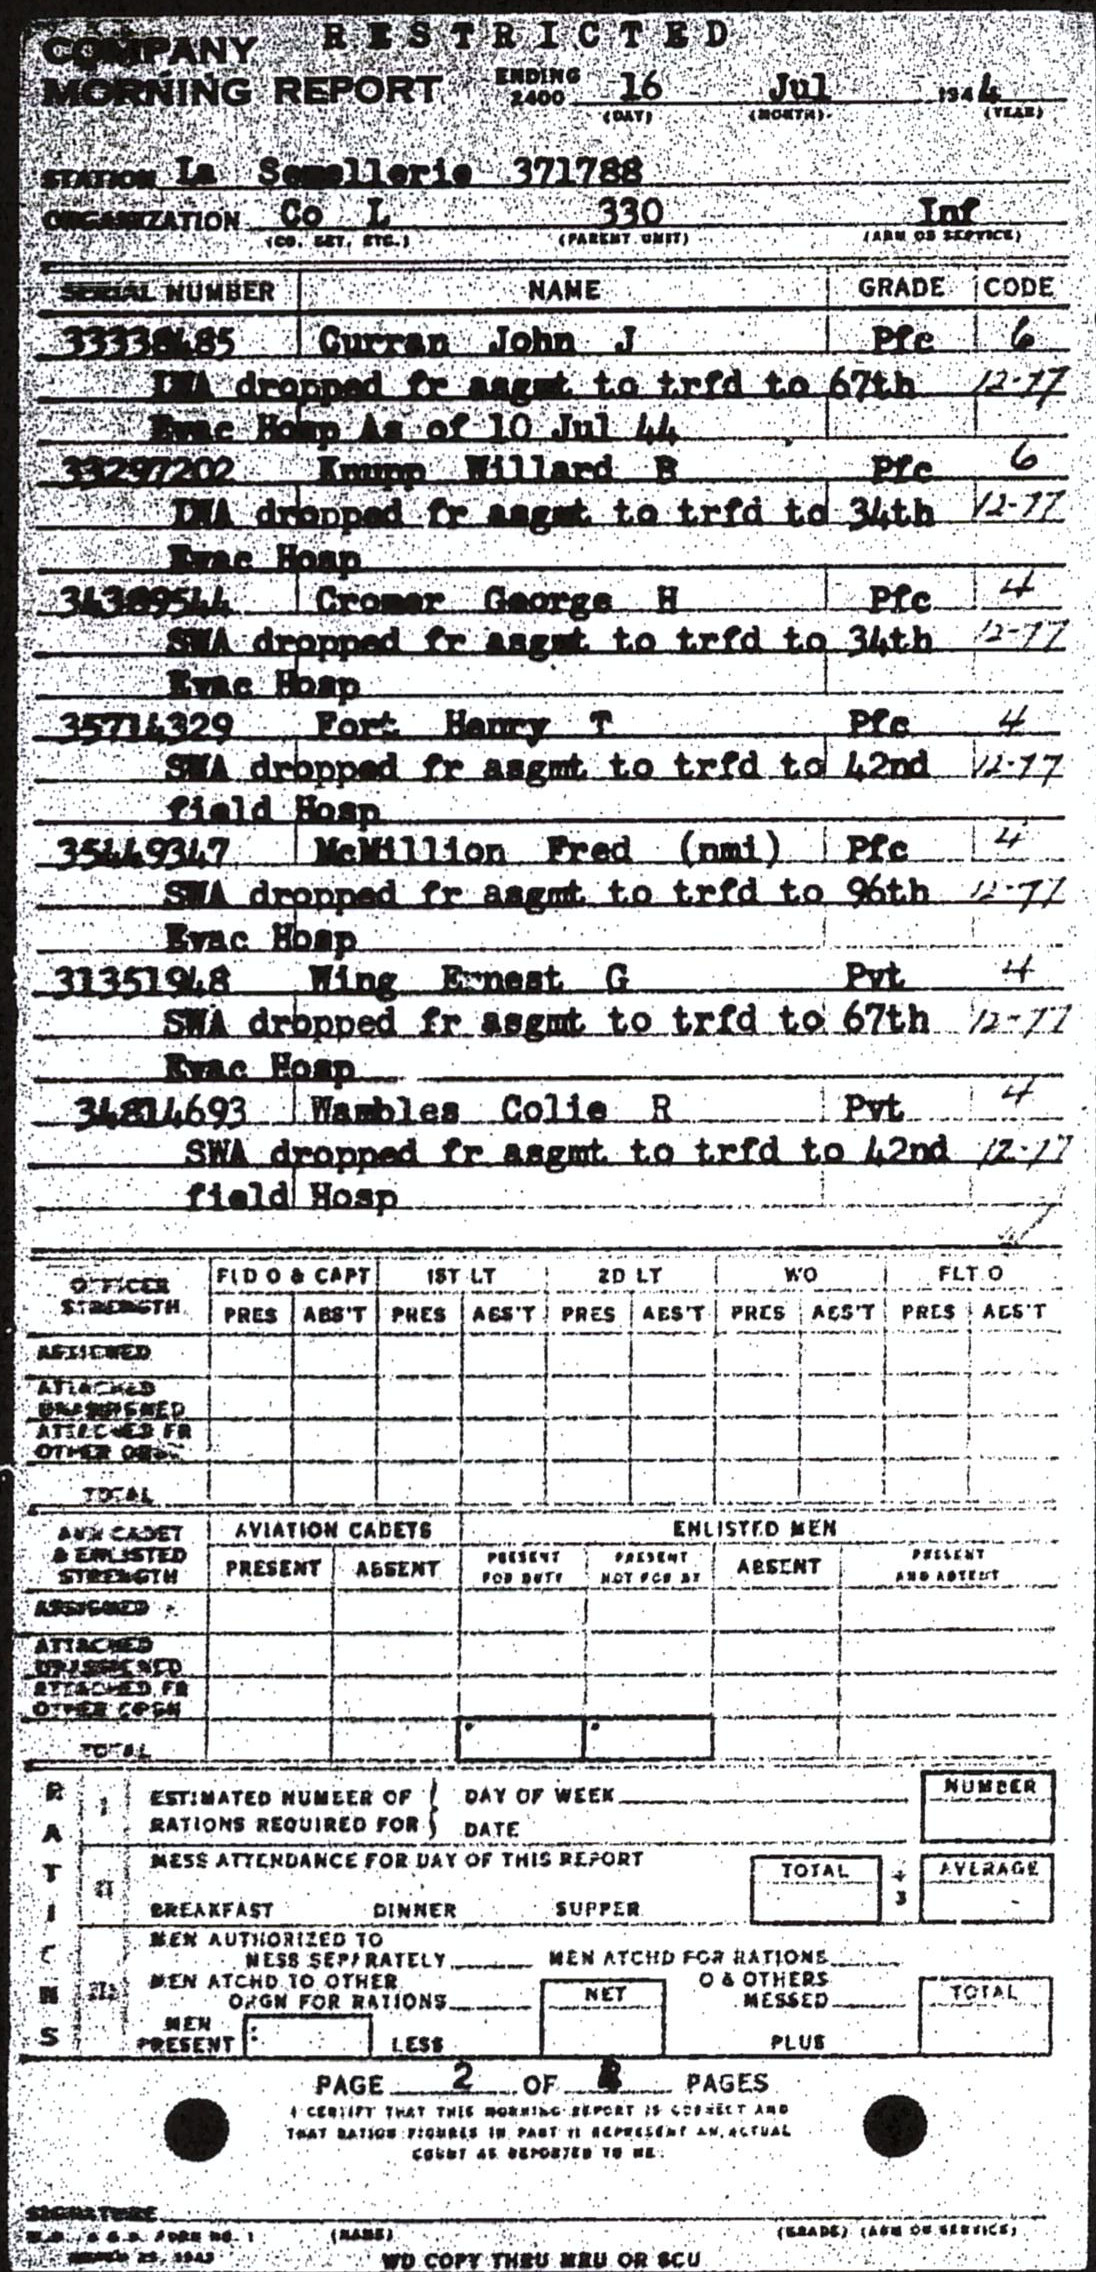 RESTRICTED
COMPANY
MORNING REPORT ENDING 2400 16 Jul 1944
(DAY) (MONTH) (YEAR)
STATION La Semellerie 371788
ORGANIZATION Co L 330 Inf
(CO. DET. ETC.) (PARENT UNIT) (ARM OR SERVICE)
SERIAL NUMBER NAME GRADE CODE
33338485 Curran John J Pfc 6
LWA dropped fr asgmt to trfd to 67th 12-77
Evac Hosp As of 10 Jul 44
33297202 Knupp Willard B Pfc 6
LWA dropped fr asgmt to trfd to 34th 12-77
Evac Hosp
34389544 Cromer George H Pfc 4
SWA dropped fr asgmt to trfd to 34th 12-77
Evac Hosp
35714329 Fort Henry T Pfc 4
SWA dropped fr asgmt to trfd to 42nd 12-77
field Hosp
35449347 McMillion Fred (nmi) Pfc 4
SWA dropped fr asgmt to trfd to 96th 12-77
Evac Hosp
31351948 Wing Ernest G Pvt 4
SWA dropped fr asgmt to trfd to 67th 12-77
Evac Hosp
34814693 Wambles Colie R Pvt 4
SWA dropped fr asgmt to trfd to 42nd 12-77
field Hosp
OFFICER STRENGTH FLD O & CAPT 1ST LT 2D LT WO FLT O
PRES ABS'T PRES ABS'T PRES ABS'T PRES ABS'T PRES ABS'T
ASSIGNED
ATTACHED UNASSIGNED
ATTACHED FR OTHER ORGN
TOTAL
AVN CADET & ENLISTED STRENGTH AVIATION CADETS ENLISTED MEN
PRESENT ABSENT PRESENT FOR DUTY PRESENT NOT FOR DY ABSENT PRESENT AND ABSENT
ASSIGNED
ATTACHED UNASSIGNED
ATTACHED FR OTHER ORGN
TOTAL
RATIONS
I ESTIMATED NUMBER OF RATIONS REQUIRED FOR } DAY OF WEEK NUMBER
DATE
II MESS ATTENDANCE FOR DAY OF THIS REPORT TOTAL ÷ 3 AVERAGE
BREAKFAST DINNER SUPPER
III MEN AUTHORIZED TO
MESS SEPARATELY MEN ATCHD FOR RATIONS
MEN ATCHD TO OTHER
ORGN FOR RATIONS NET O & OTHERS MESSED TOTAL
MEN PRESENT LESS PLUS
PAGE 2 OF PAGES
I CERTIFY THAT THIS MORNING REPORT IS CORRECT AND
THAT RATION FIGURES IN PART II REPRESENT AN ACTUAL
COUNT AS REPORTED TO ME.
SIGNATURE
W.D. A.G.O. FORM NO. 1 (NAME) (GRADE) (ARM OR SERVICE)
MARCH 25, 1943
WD COPY THRU MRU OR SCU